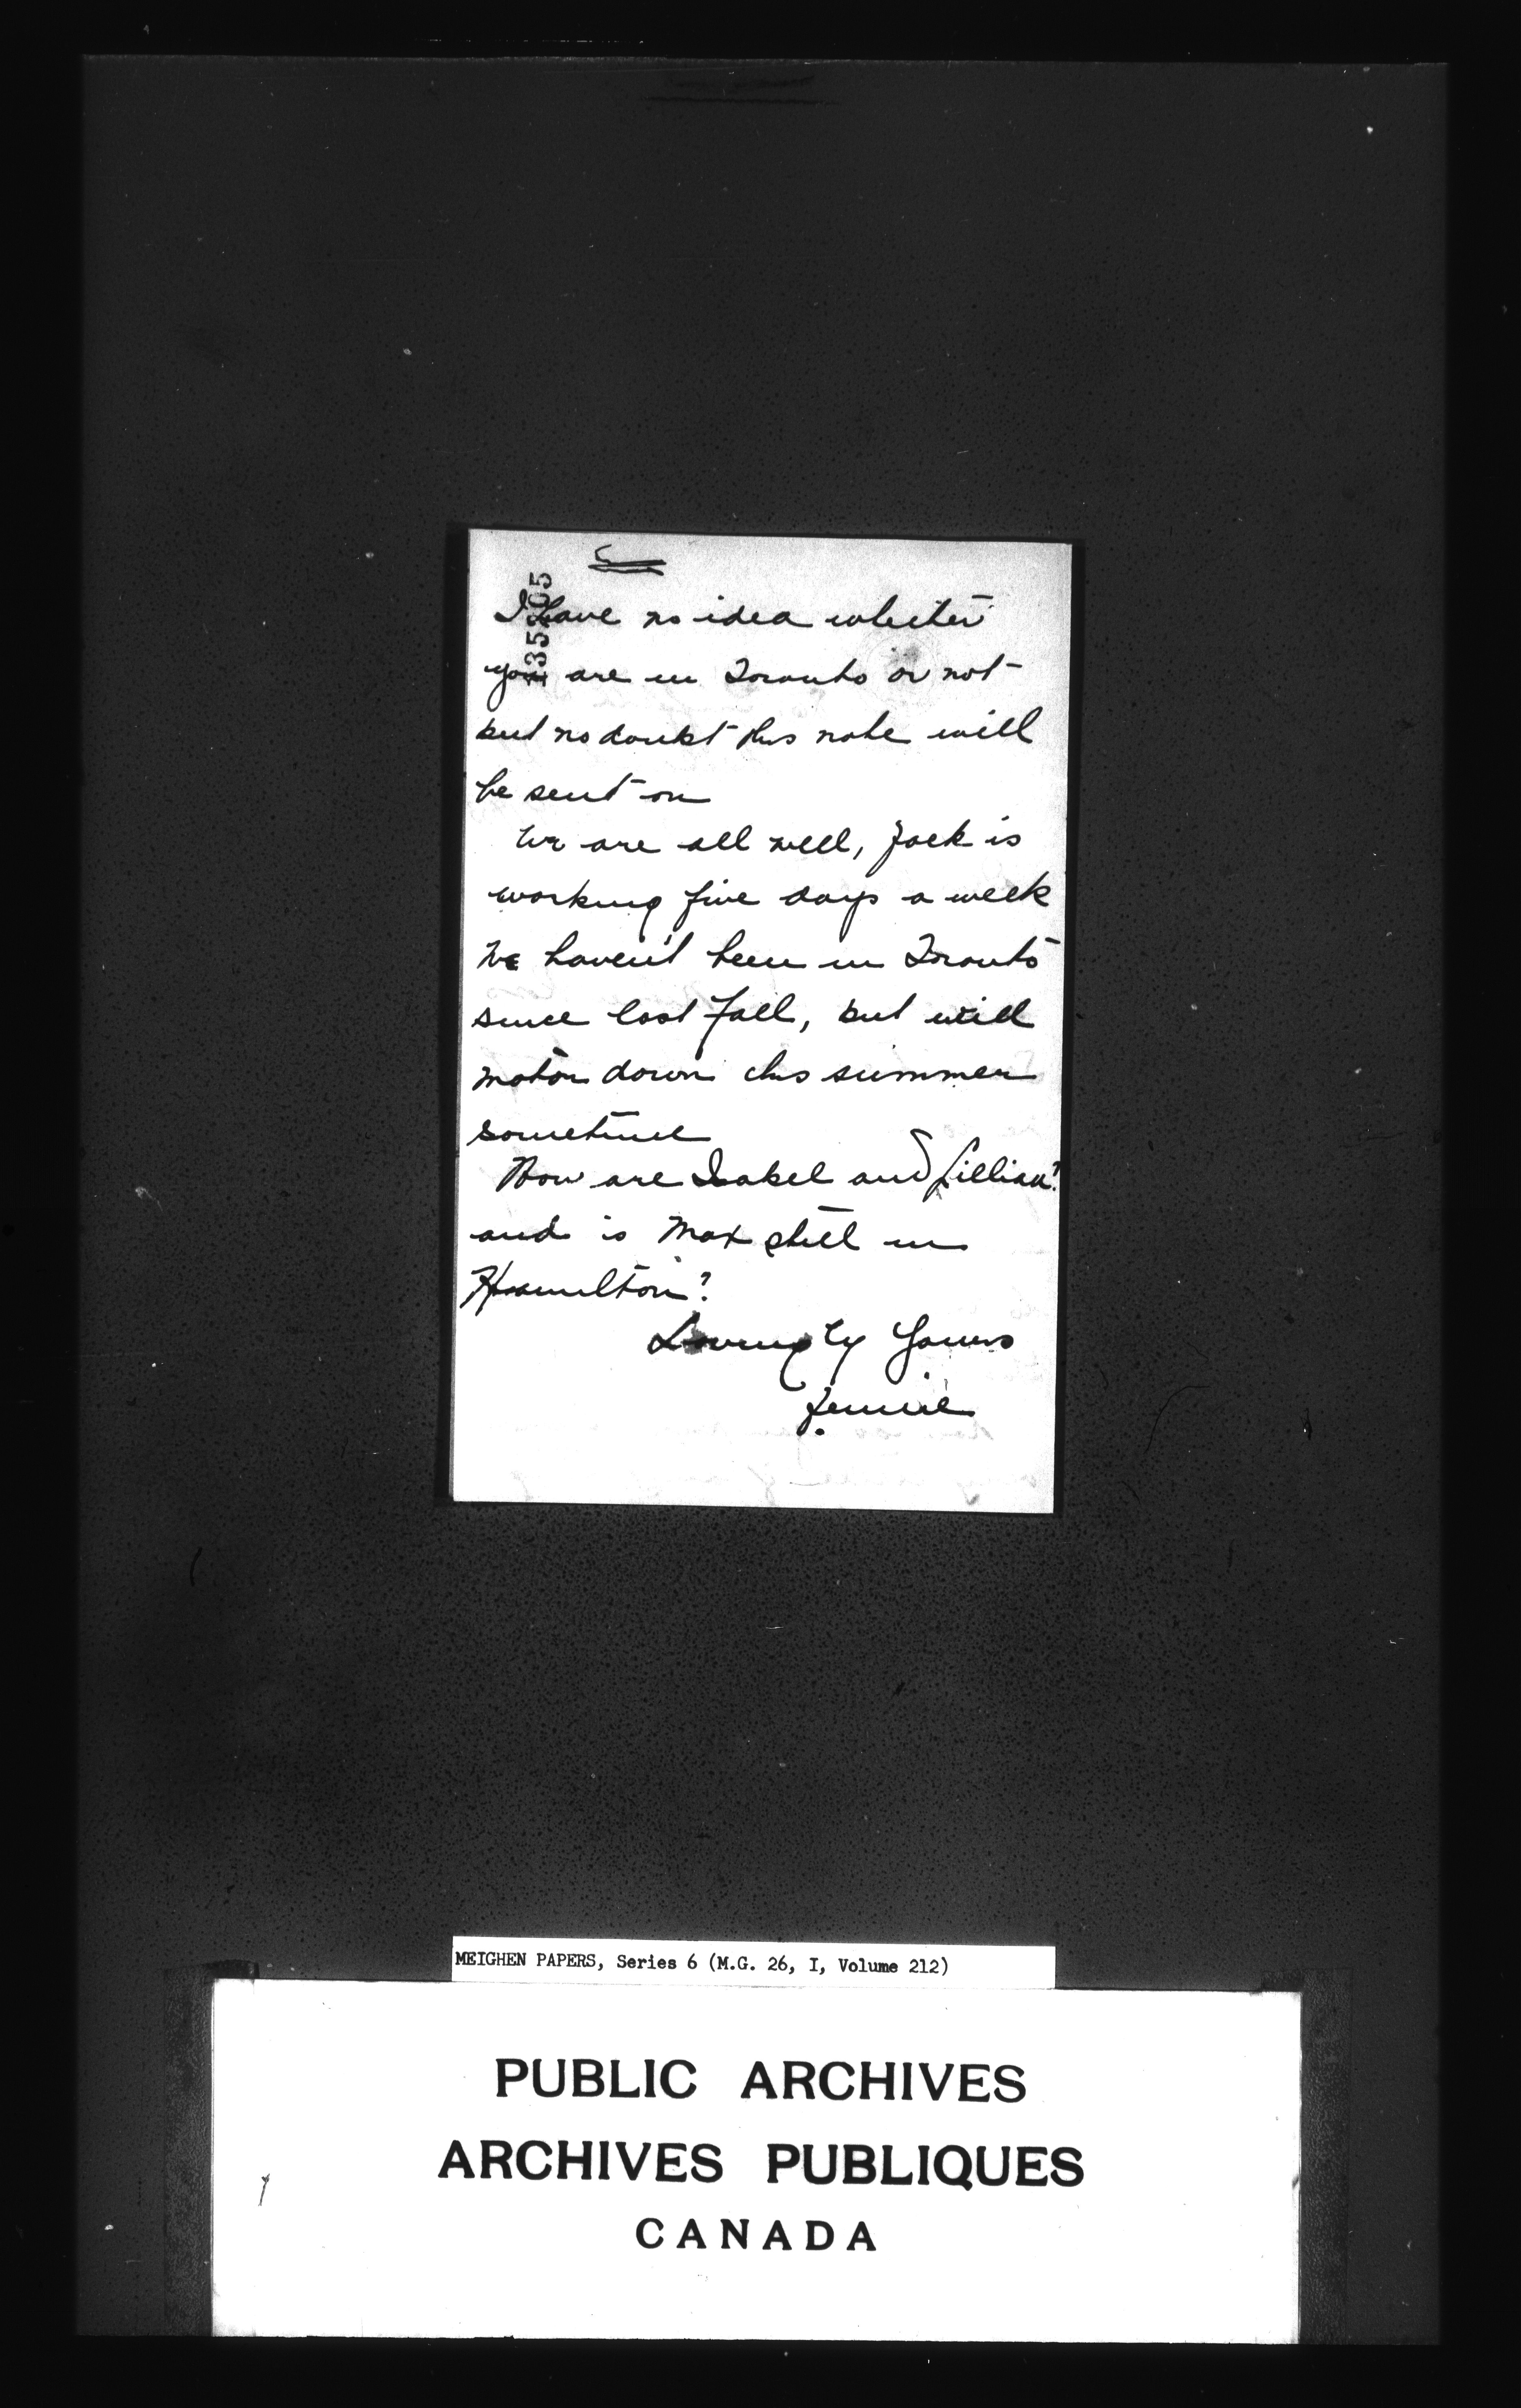 5
135205
I have no idea whether
you are in Toronto or not
but no doubt this note will
be sent on
We are all well, Jack is
working five days a week
We haven't been in Toronto
since last Fall, but will
motor down this summer
sometime
How are Isabel and Lillian?
and is Max still in
Hamilton?
Lovingly Yours
Jennie
MEIGHEN PAPERS, Series 6 (M.G. 26, I, Volume 212)
PUBLIC ARCHIVES
ARCHIVES PUBLIQUES
CANADA